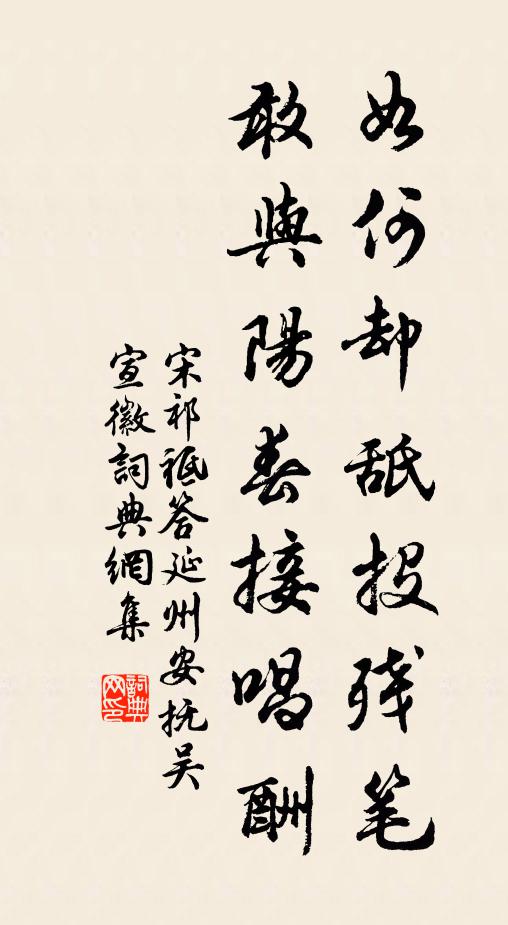 如何却舐投残笔
敢與陽春接唱酬
宋祁祗答延州安抚吴
宣徽詞典網集
詞典网印